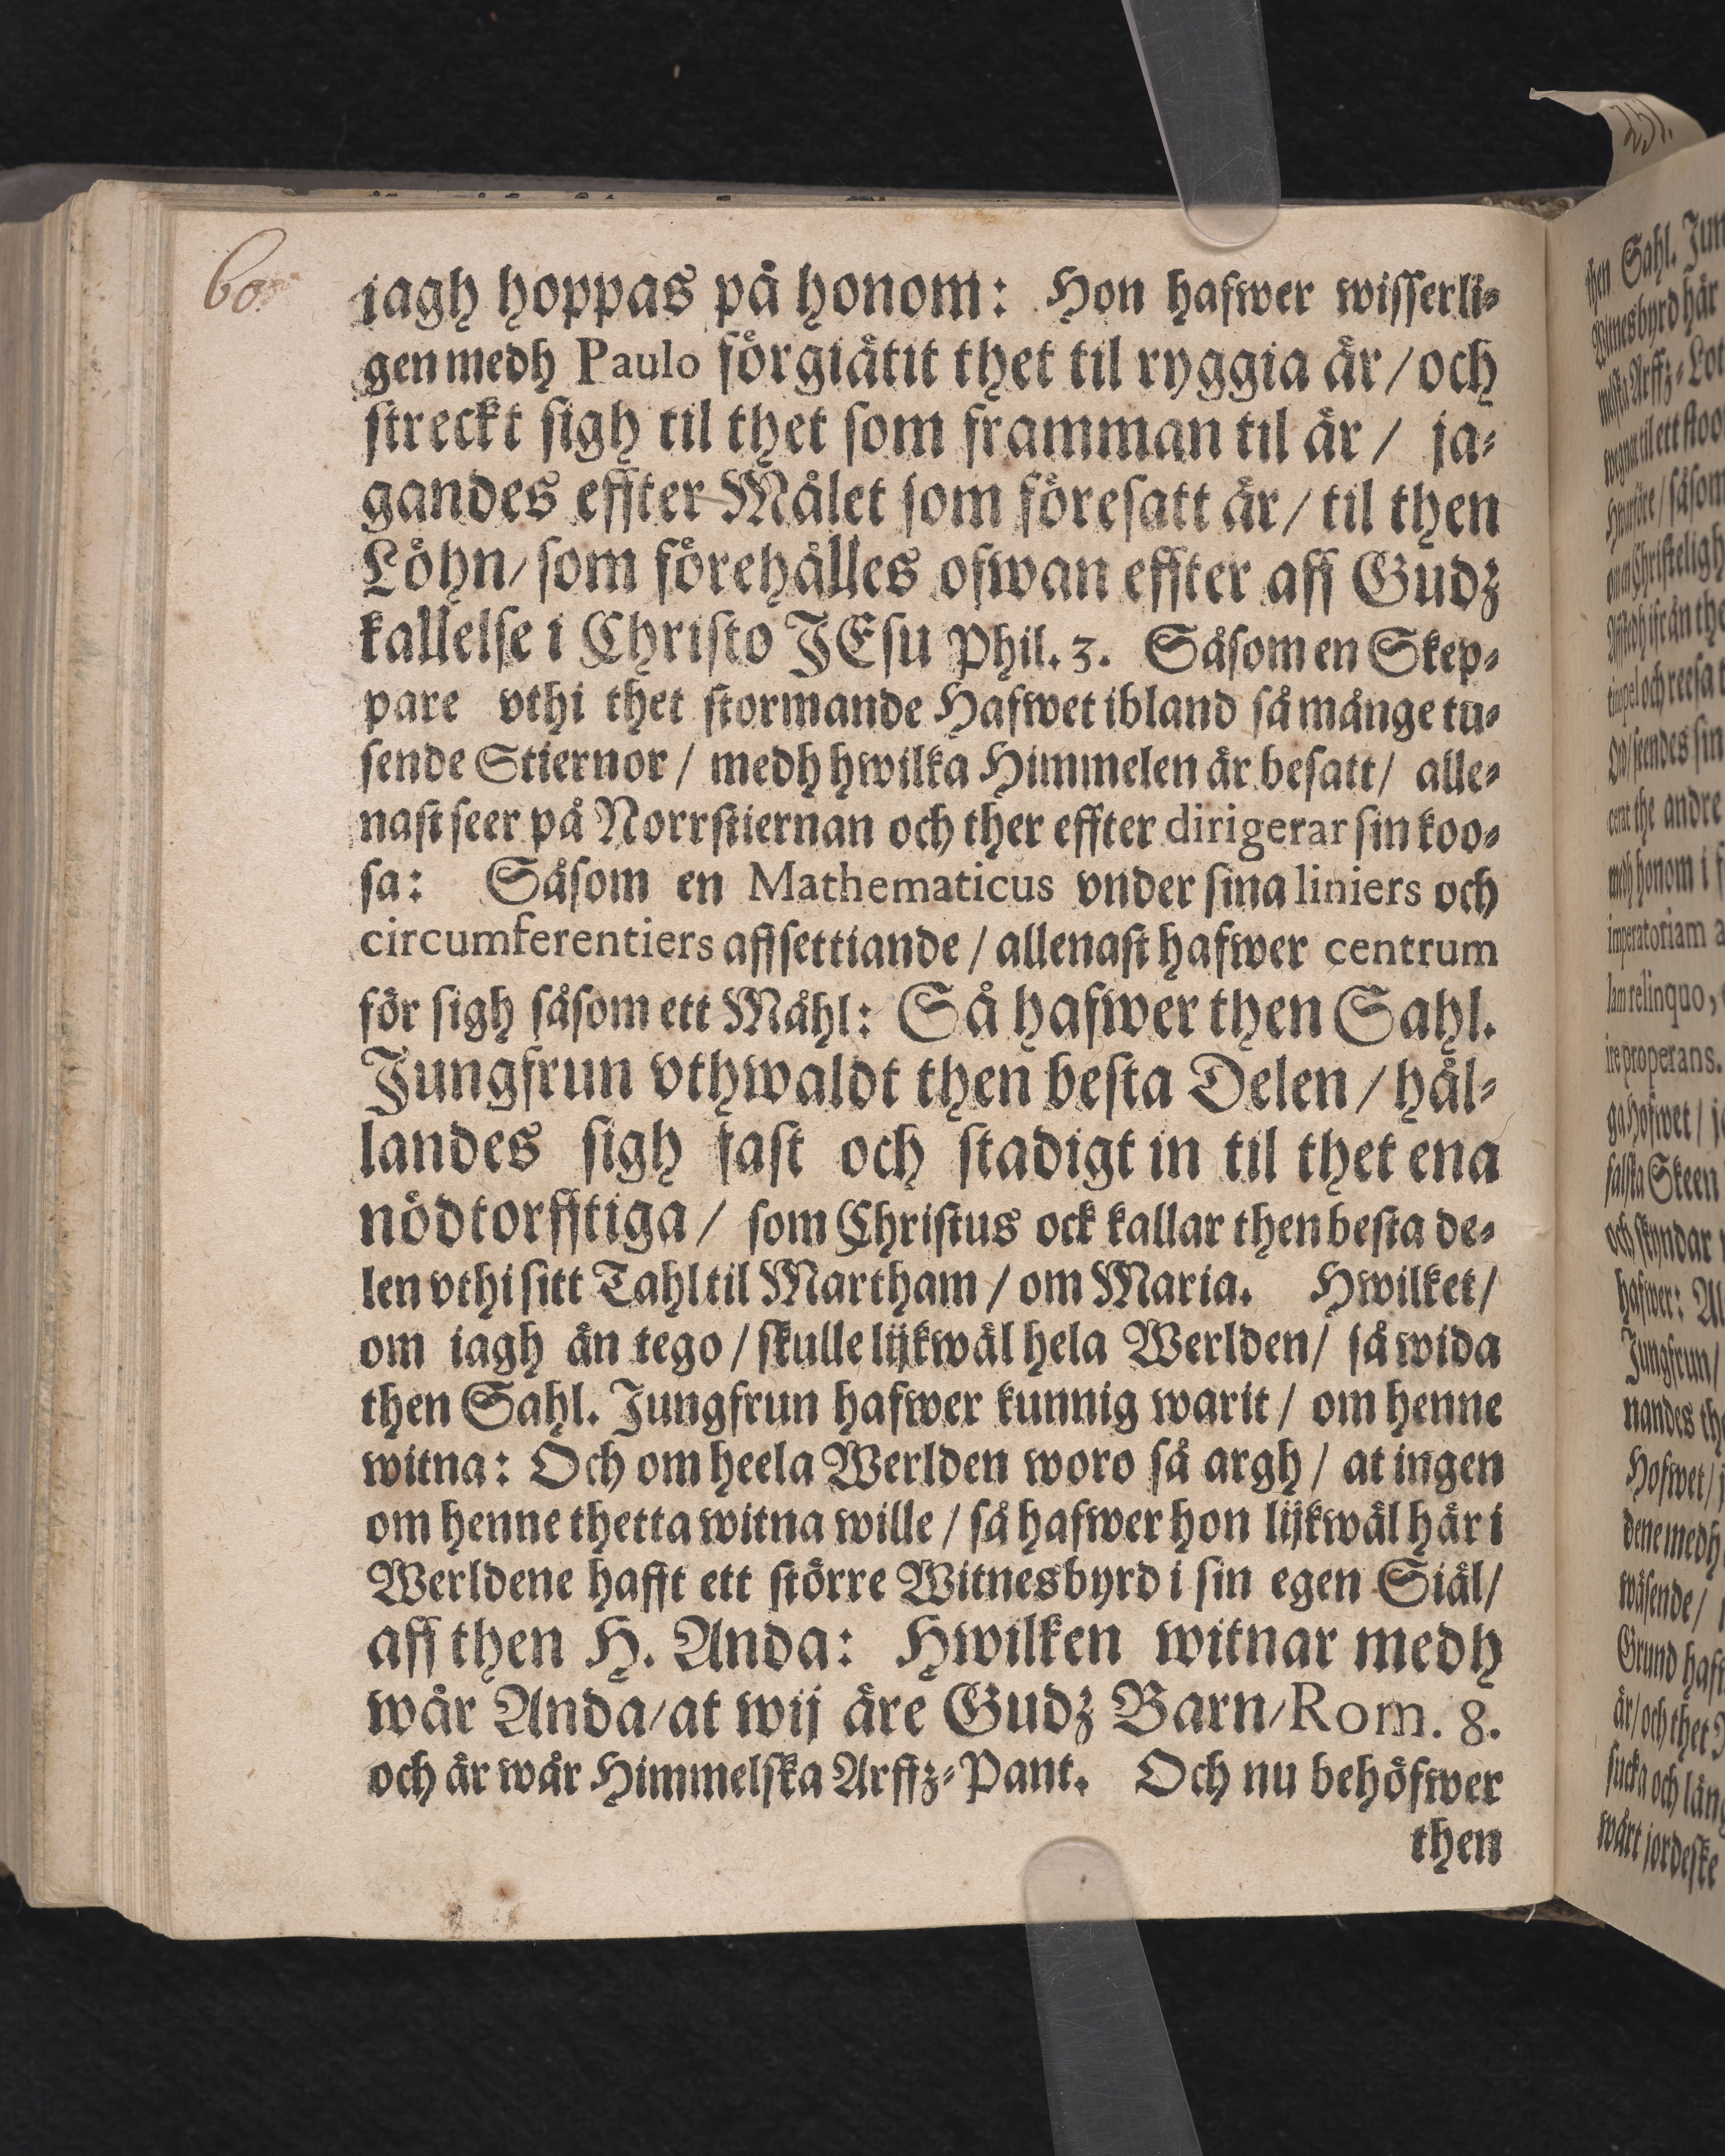 60.
jagh hoppas på honom: Hon hafwer wisserli-
gen medh Paulo förgiätit thet til ryggia är / och
streckt sigh til thet som framman til är / ja-
gandes effter Målet som föresatt är / til then
Löhn / som förehålles ofwan effter aff Gudz
kallelse i Christo JEsu Phil. 3. Såsom en Skep-
pare vthi thet stormande Hafwet ibland så månge tu-
sende Stiernor / medh hwilka Himmelen är besatt / alle-
nast seer på Norrstiernan och ther effter dirigerar sin koo-
sa: Såsom en Mathematicus vnder sina liniers och
circumferentiers affsettiande / allenast hafwer centrum
för sigh såsom ett Måhl: Så hafwer then Sahl.
Jungfrun vthwaldt then besta Delen / hål-
landes sigh fast och stadigt in til thet ena
nödtorfftiga / som Christus ock kallar then besta de-
len vthi sitt Tahl til Martham / om Maria. Hwilket /
om iagh än tego / skulle lijkwäl hela Werlden / så wida
then Sahl. Jungfrun hafwer kunnig warit / om henne
witna: Och om heela Werlden woro så argh / at ingen
om henne thetta witna wille / så hafwer hon lijkwäl här i
Werldene hafft ett större Witnesbyrd i sin egen Siäl /
aff then H. Anda: Hwilken witnar medh
wår Anda / at wij äre Gudz Barn / Rom. 8.
och är wår Himmelska Arffz-Pant. Och nu behöfwer
then
251.
then Sahl. Jun
Witnesbyrd här
Arffz-Lot
til ett stoo
/ såsom
Christeligh
ifrån the
och reesa t
sin
the andre
medh honom i
imperatoriam a
relinquo,
ire properans.
ga Hofwet /
falska Skeen
och skyndar
hafwer: Al
Jungfrun /
nandes the
Hofwet /
dene medh
wäsende /
Grund haff
är / och thet
sucka och läng
wårt jordeske